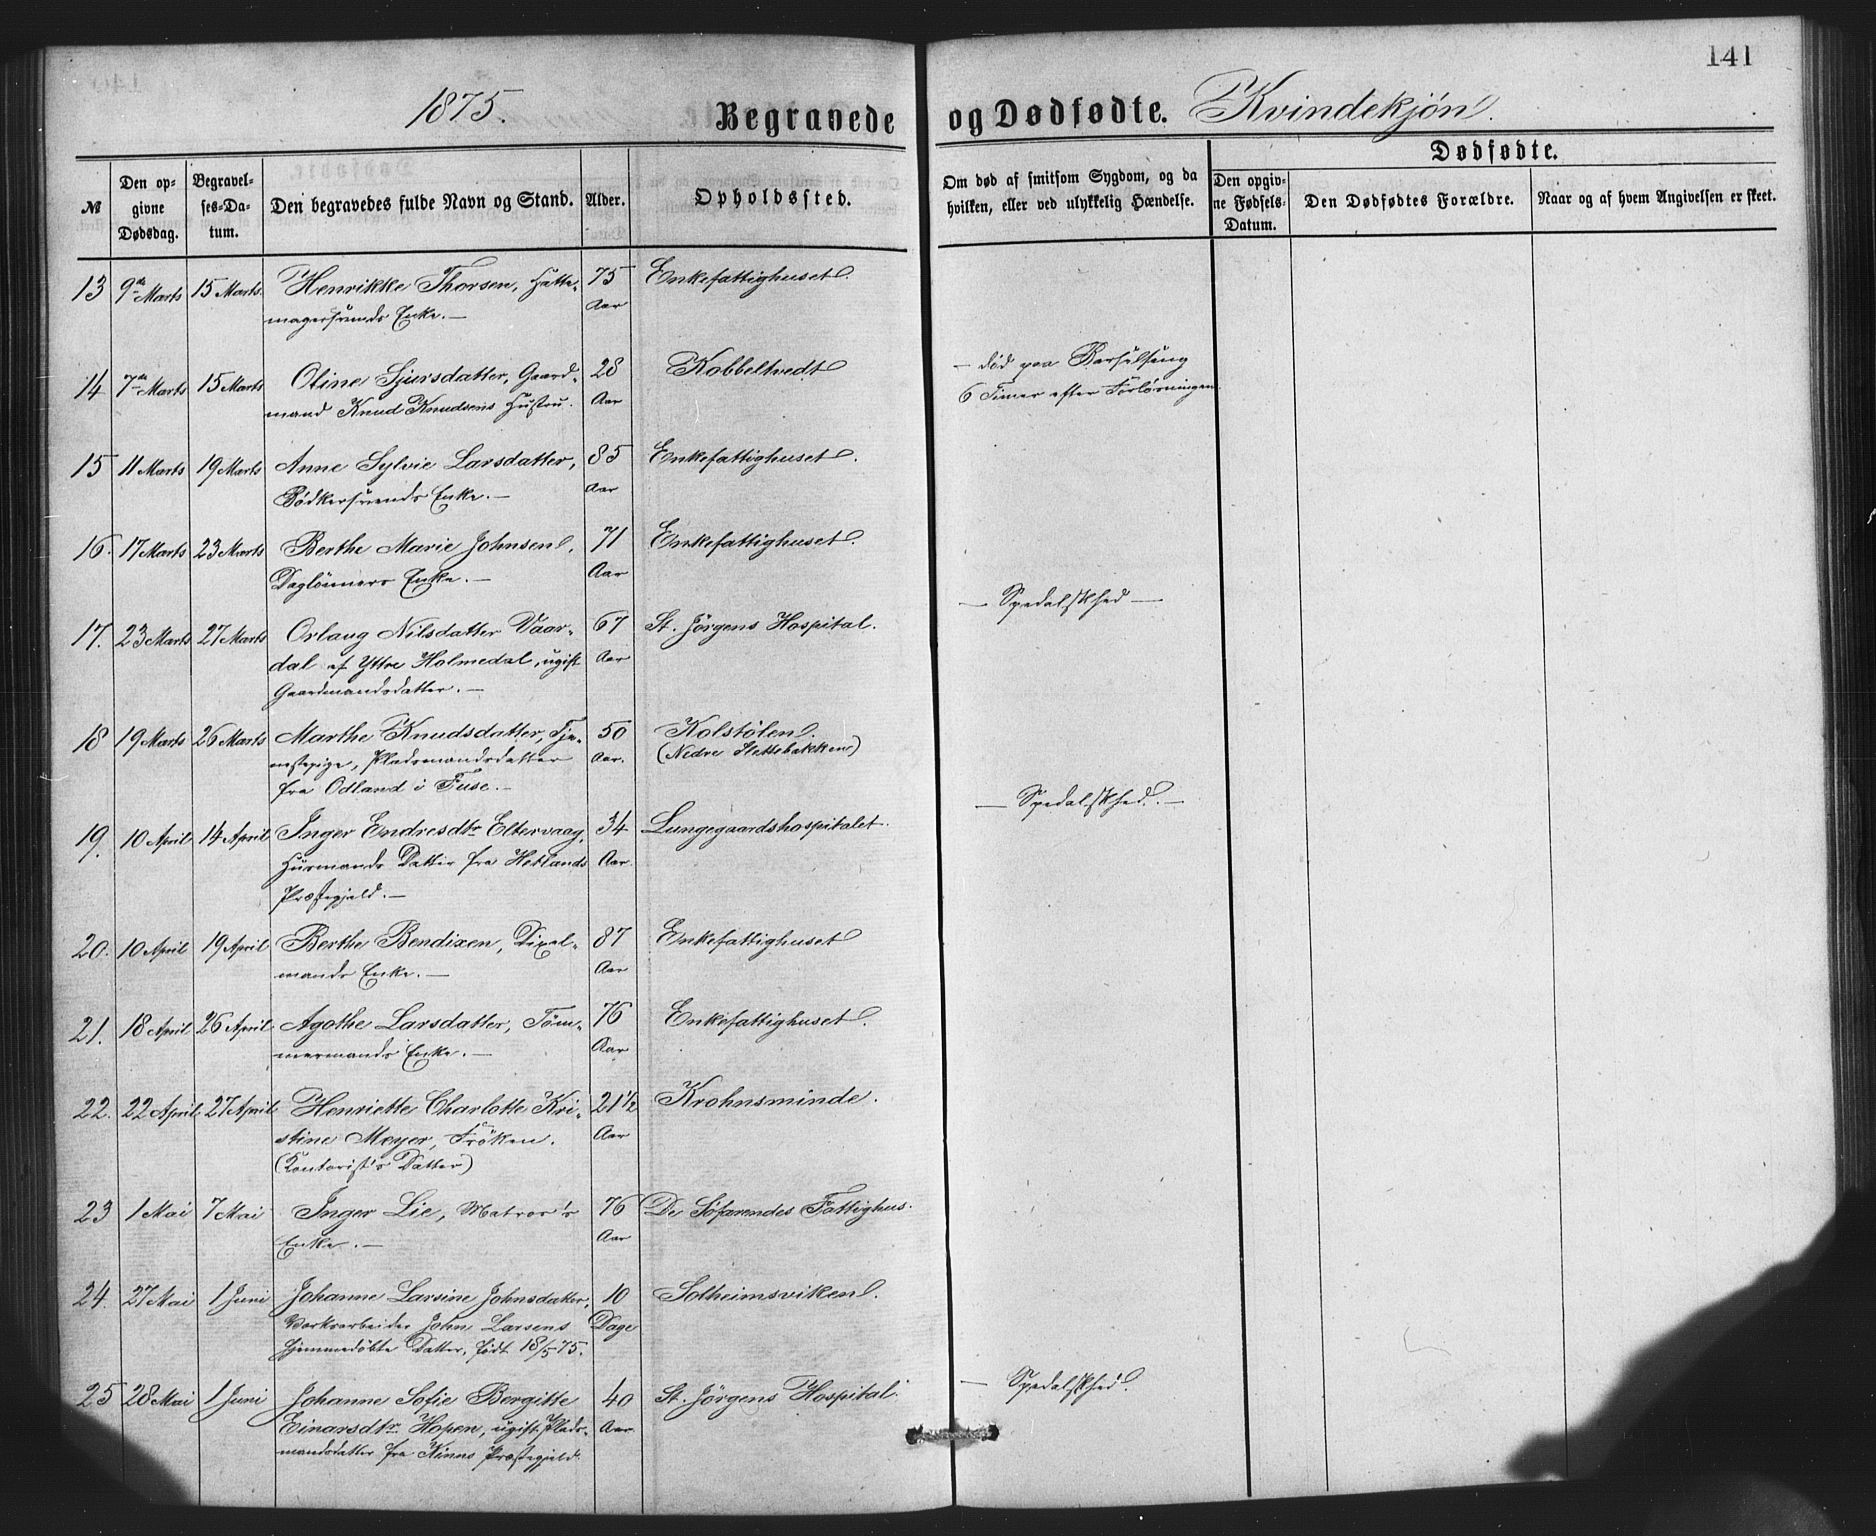 141
1875.
Begravede og Dødfødte. Kvindekjøn.
№
Den opgivne Dødsdag.
Begravelses-Datum.
Den begravedes fulde Navn og Stand.
Alder.
Opholdssted.
Om død af smitsom Sygdom, og da hvilken, eller ved ulykkelig Hændelse.
Dødfødte.
Den opgivne Fødsels-Datum.
Den Dødfødtes Forældre.
Naar og af hvem Angivelsen er skeet.
13 9de Marts 15 Marts. Henrikke Thorsen, Hatte- 75 Enkefattighuset.
magersvends Enke. — Aar
14 7de Marts 15 Marts Oline Sjursdatter, Gaard- 28 Kobbeltvedt — død paa Barselseng
mand Knud Knudsens Hustru. Aar 6 Timer efter Forløsningen.
15 11 Marts 19 Marts Anne Sylvie Larsdatter, 85 Enkefattighuset.
Bödkersvends Enke. — Aar
16. 17 Marts 23 Marts Berthe Marie Johnsen, 71 Enkefattighuset.
Daglönners Enke. — Aar
17. 23 Marts 27 Marts Orlaug Nilsdatter Vaar- 67 St. Jörgens Hospital. — Spedalskhed —
dal af Yttre Holmedal, ugift Aar
Gaardmandsdatter. —
18 19 Marts 26 Marts Marthe Knudsdatter, Tje- 50 Kolstølen.
nestepige, Pladsmandsdatter Aar. (Nedre Slettebakken)
fra Odland i Fuse. —
19. 10 April 14 April Inger Endresdtr Eltervaag, 34 Lungegaardshospitalet. — Spedalskhed. —
Husmands Datter fra Hetlands Aar.
Præstegjeld. —
20. 10 April 19 April Berthe Bendixen, 87 Enkefattighuset
mands Enke. — Aar
21. 18 April 26 April Agothe Larsdatter, Töm- 76 Enkefattighuset.
mermands Enke. — Aar
22. 22 April 27 April Henriette Charlotte Kri- 21 1/2 Krohnsminde.
stine Meyer, Fröken. Aar
(Kontorist's Datter)
23 1 Mai 7 Mai Inger Lie, Matros's 76 De Söfarendes Fattighus.
Enke. — Aar
24. 27 Mai 1 Juni Johanne Larsine Johnsdatter, 10 Solheimsviken.
Værksarbeider John Larsens Dage
hjemmedöbte Datter, født 18/5 75.
25 28 Mai 1 Juni Johanne Sofie Bergitte 40 St. Jörgens Hospital. — Spedalskhed.
Einarsdtr Hopen, ugift Plads- Aar
mandsdatter fra Kinns Præstegjeld.